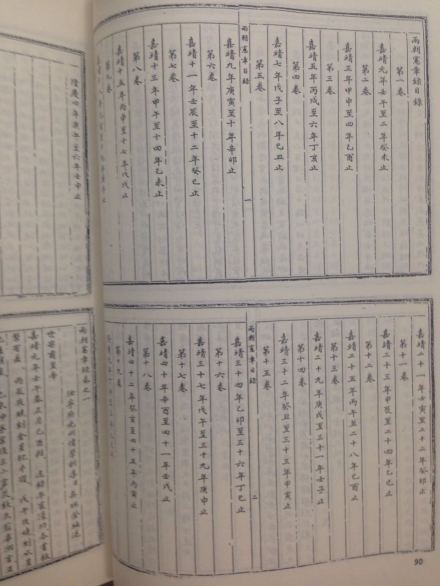 兩朝憲章錄目錄
第一卷
嘉靖元年壬午至二年癸未止
第二卷
嘉靖三年甲申至四年乙酉止
第三卷
嘉靖五年丙戌至六年丁亥止
第四卷
嘉靖七年戊子至八年己丑止
第五卷
兩朝憲章目錄 一
嘉靖九年庚寅至十年辛卯止
第六卷
嘉靖十一年壬辰至十二年癸巳止
第七卷
嘉靖十三年甲午至十四年乙未止
第八卷
嘉靖十五年丙申至十七年戊戌止
第九卷
隆慶四年庚午至六年壬申止
嘉靖二十一年壬寅至二十二年癸卯止
第十一卷
嘉靖二十三年甲辰至二十四年乙巳止
第十二卷
嘉靖二十五年丙午至二十八年己酉止
第十三卷
嘉靖二十九年庚戌至三十一年壬子止
第十四卷
嘉靖三十二年癸丑至三十三年甲寅止
第十五卷
兩朝憲章目錄 二
嘉靖三十四年乙卯至三十六年丁巳止
第十六卷
嘉靖三十七年戊午至三十九年庚申止
第十七卷
嘉靖四十年辛酉至四十一年壬戌止
第十八卷
嘉靖四十二年癸亥至四十五年丙寅止
第十九卷
兩朝憲章錄卷之一
世宗肅皇帝
90